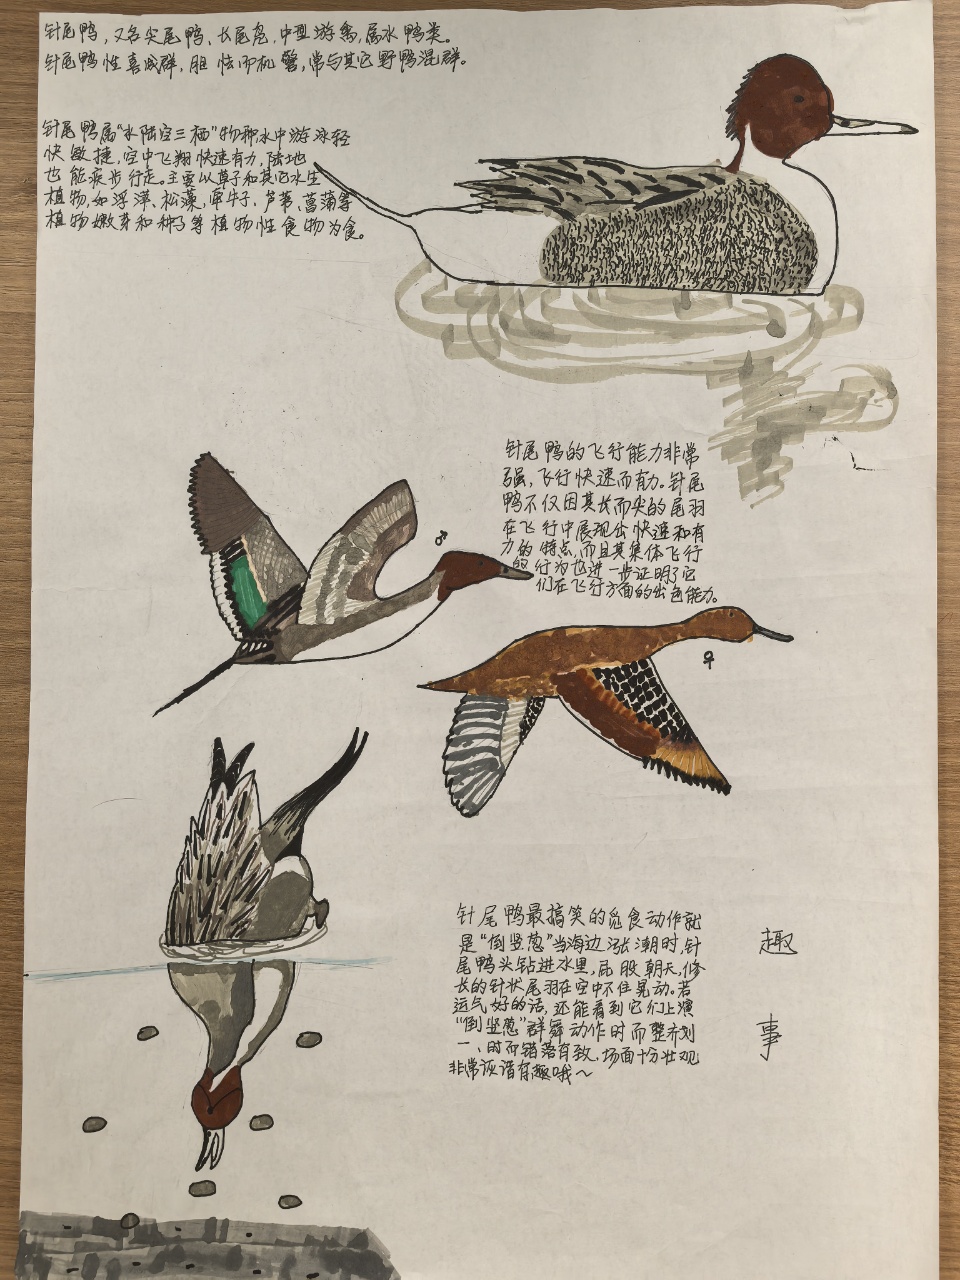 针尾鸭，又名尖尾鸭、长尾凫，中型游禽，属水鸭类。
针尾鸭性喜成群，胆怯而机警，常与其它野鸭混群。
针尾鸭属"水陆空三栖"物种水中游泳轻
快敏捷，空中飞翔快速有力，陆地
也能疾步行走。主要以草子和其它水生
植物，如浮萍、松藻，牵牛子、芦苇、菖蒲等
植物嫩芽和种子等植物性食物为食。
针尾鸭的飞行能力非常
强，飞行快速而有力。针尾
鸭不仅因其长而尖的尾羽
在飞行中展现出快速和有
力的特点，而且其集体飞行
的行为也进一步证明了它
们在飞行方面的出色能力。
♂
♀
针尾鸭最搞笑的觅食动作就
是"倒竖葱"当海边涨潮时，针
尾鸭头钻进水里，屁股朝天，修
长的针状尾羽在空中不住晃动。若
运气好的话，还能看到它们上演
"倒竖葱"群舞动作时而整齐划
一、时而错落有致，场面十分壮观
非常诙谐有趣哦～
趣
事